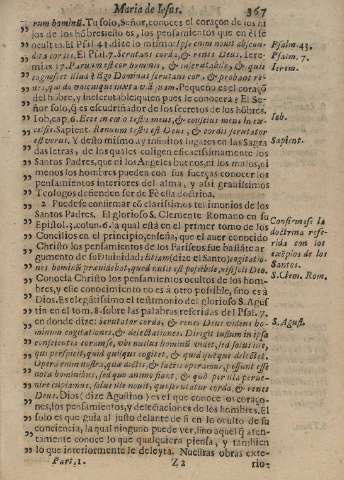 Maria de Iesus.
367
rum hominū. Tu solo, Señor, conoces el coraçon de los hi
jos de los hōbres; esto es, los pensamientos que en èl se
ocultan. El Psal. 43. dize lo mismo:
dita cordis. El Psal. 7. Scrutans corda, & renes Deus. Iere
mias 17. Prauum est cor hominis, & inscrutabile, & quis
cognoscet illud? Ego Dominus scrutans cor, & probans re-
nes, qui do vnicuique iuxta viā suam. Pequeño es el coraçō
del hōbre, y inescrutable; quien pues le conocera? El Se
ñor solo, q̄ es escudriñador de los secretos de los hōbres.
Iob, cap. 6. Ecce in cœlo testis meus, & conscius meus in ex-
celsis. Sapient. Renum testis est Deus, & cordis scrutator
est verus. Y desto mismo ay muchos lugares en las Sagra
das letras, de los quales coligen eficacissimamente los
Santos Padres, que ni los Angeles buenos, ni los malos, ni
menos los hombres pueden con sus fuerças conocer los
pensamientos interiores del alma, y assi grauissimos
Teologos defienden ser de Fè esta doctrina.
2 Puedese confirmar cō clarissimos testimonios de los
Santos Padres. El glorioso S. Clemente Romano en su
Epistol. colun. 6. la qual està en el primer tomo de los
Concilios en el principio, enseña, que el auer conocido
Christo los pensamientos de los Fariseos fue bastāte ar
gumento de su Diuinidad: Etiam (dize el Santo) cogitatio
nes hominū prænidebat, quod nulli est possibile, nisi soli Deo.
Conocia Christo los pensamientos ocultos de los hom-
bres, y esse conocimiento no es à otro possible, sino es à
Dios. Es elegātissimo el testimonio del glorioso S. Agus
tin en el tom. 8. sobre las palabras referidas del Psal. 7.
en donde dize: Scrutator corda, & renes Deus videns ho-
minum cogitationes, & delectationes. Dirigit iustum in ipsa
conscientia coramse, vbi nullus hominū videt, sed solus ille,
qui perspicit, quid quisque cogitet, & quid quēque delectet.
Opera enim nostra, quæ dictis, & factis operamur, possunt esse
nota hominibus, sed quo animo fiant, & quò per illa perue-
nire cupiamus, solus ille nouit, qui scrutatur corda, & renes
Deus. Dios (dize Agustino) es el que conoce los coraço-
nes, los pensamientos, y delectaciones de los hombres. El
solo es que guia al justo delante de sì en lo oculto de su
conciencia, la qual ninguno puede ver, sino aquel q̄ aten-
tamente conoce lo que qualquiera piensa, y tambien
lo que interiormente le deleyta. Nuestras obras exte-
Part. 1.
Z 2
rio-
Psalm. 43.
Psalm. 7.
Ierem.
Iob.
Sapient.
Confirmase la
doctrina refe-
rida con los
de los
Santos.
S. Clem. Rom.
S. Agust.